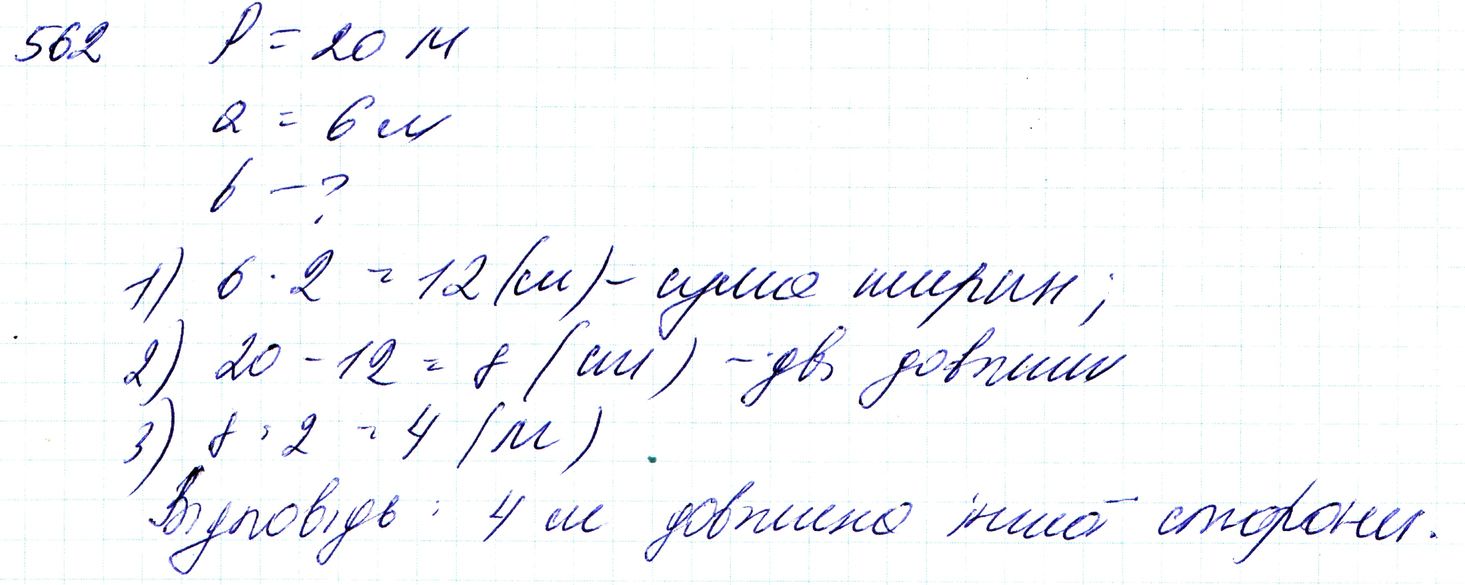 562 P = 20 м
a = 6 м
b - ?
1) 6 · 2 = 12 (см) - сума ширин;
2) 20 - 12 = 8 (см) - дві довжини
3) 8 : 2 = 4 (м)
Відповідь: 4 м довжина іншої сторони.